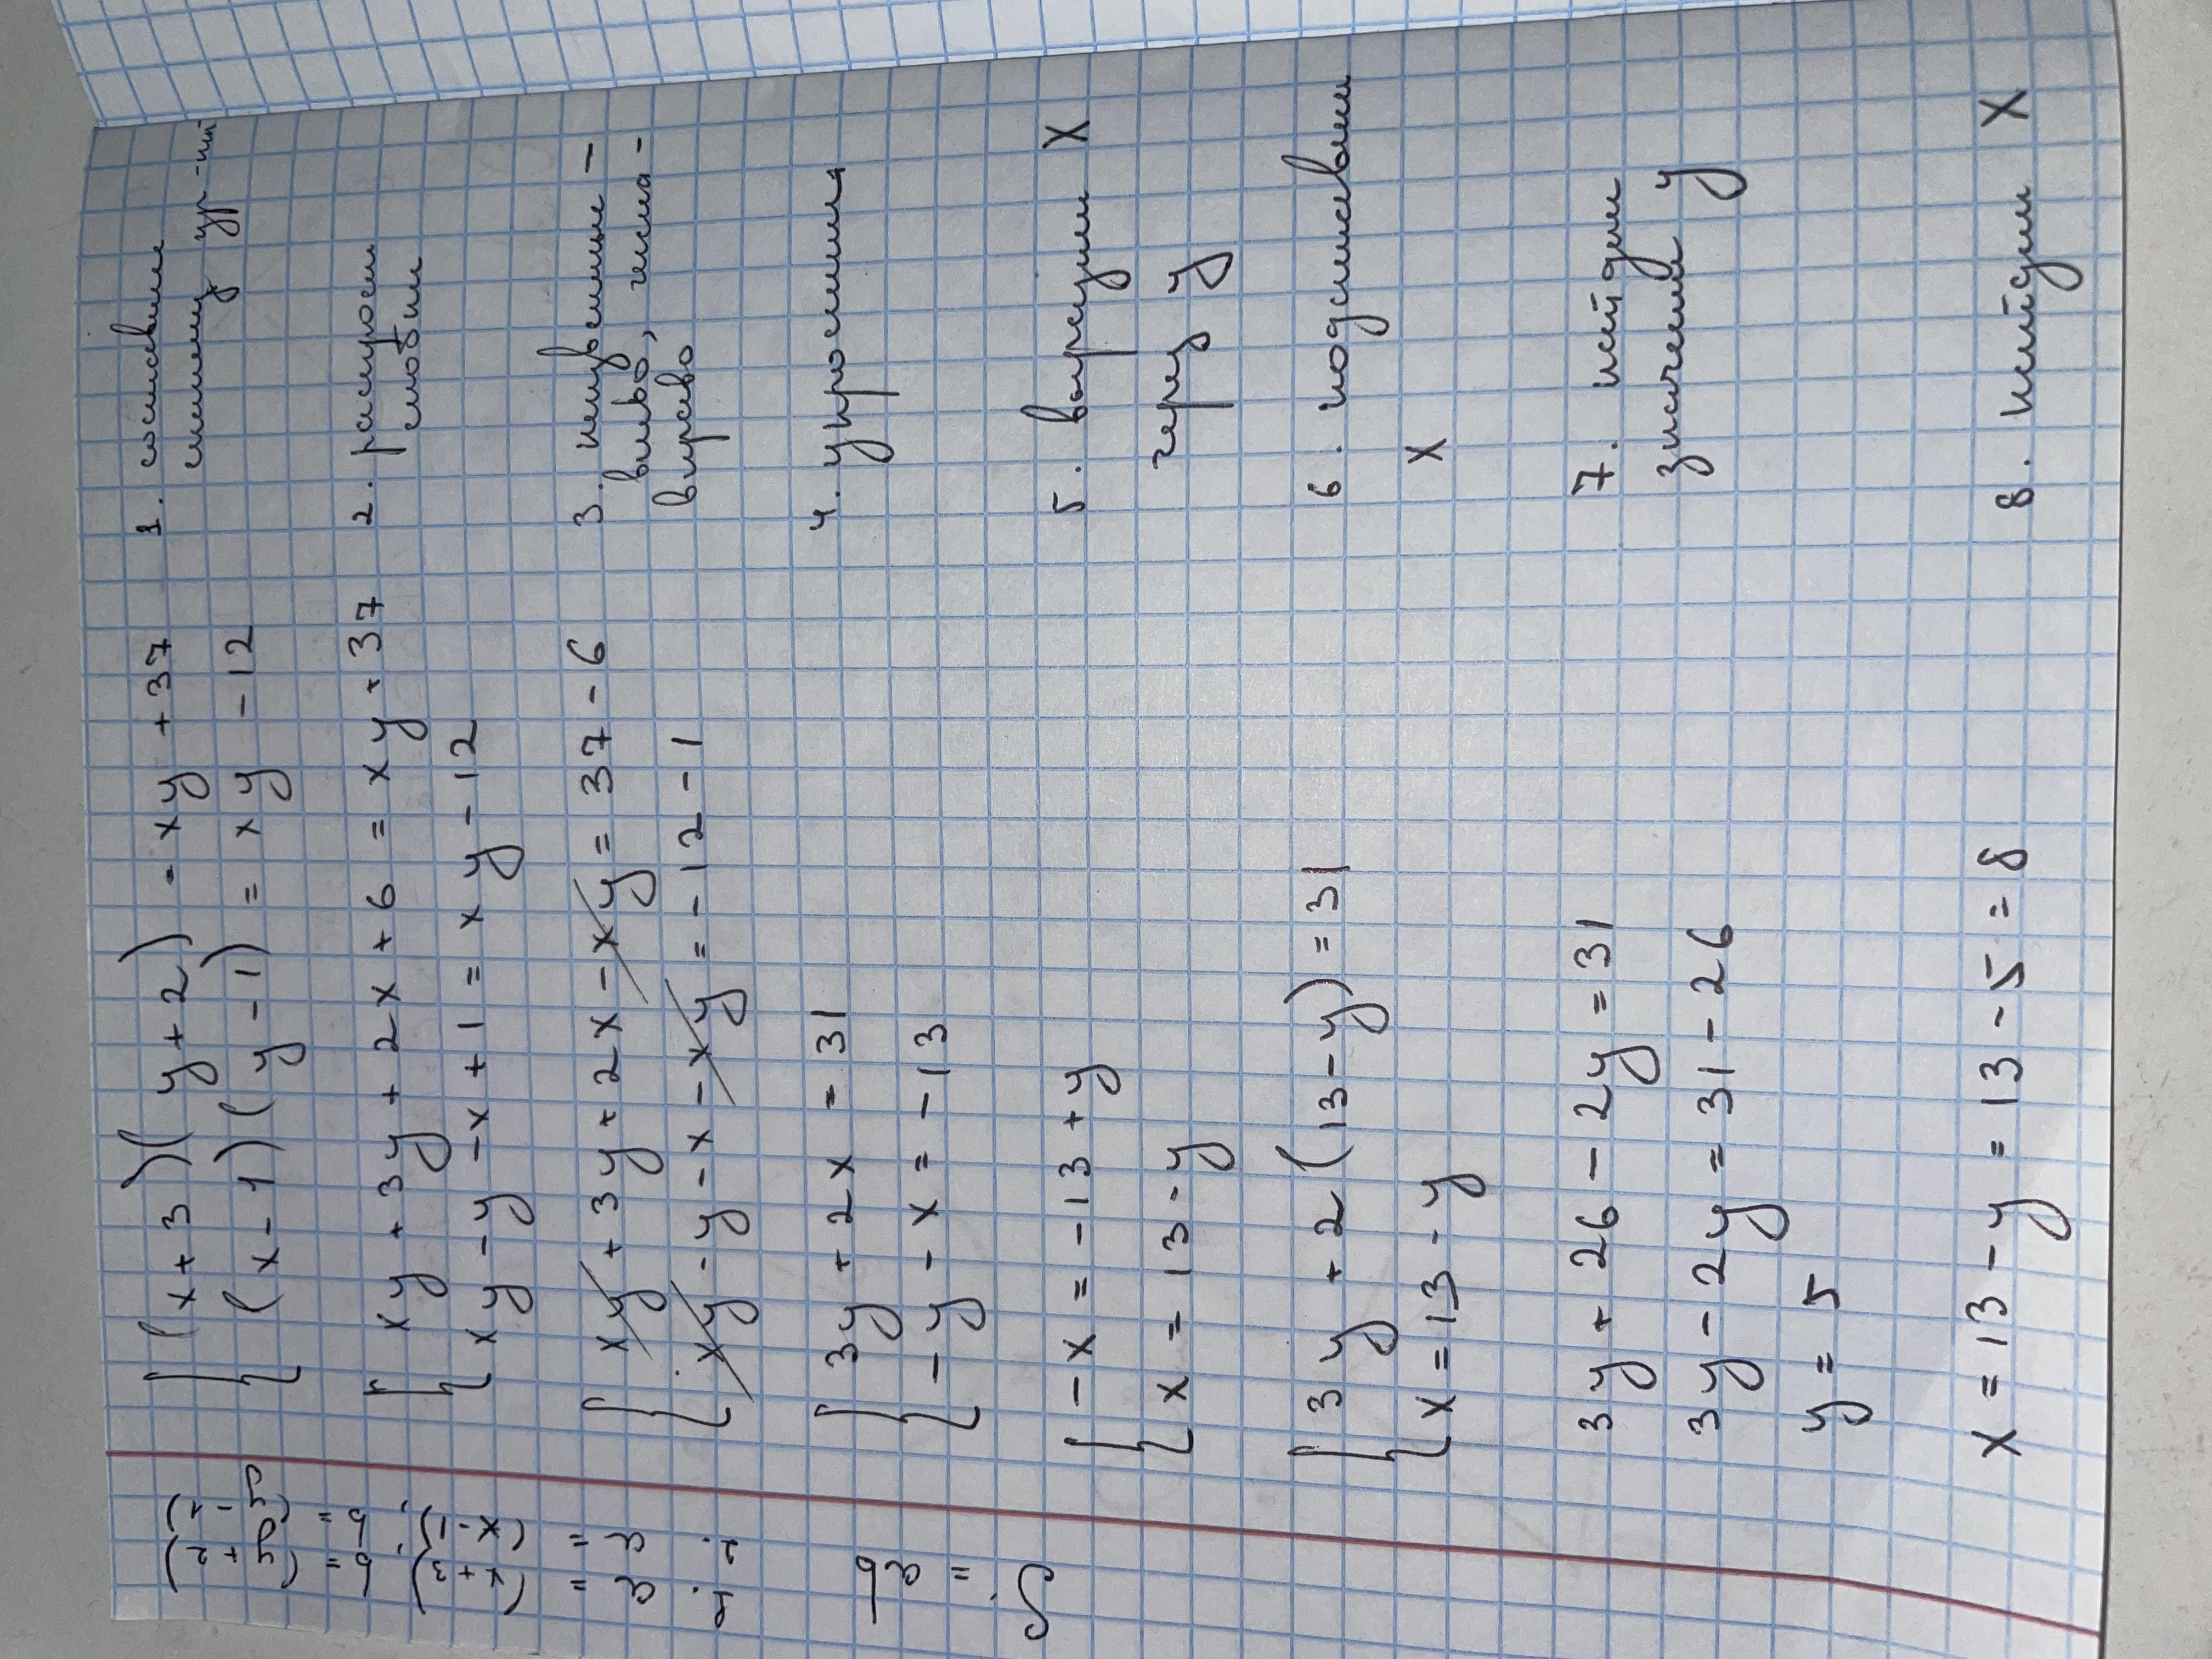 (x+3)(y+2) = xy + 37
(x-1)(y-1) = xy - 12
1. составили
систему ур-ий
xy + 3y + 2x + 6 = xy + 37
xy - y - x + 1 = xy - 12
2. раскроем
скобки
xy + 3y + 2x - xy = 37 - 6
xy - y - x - xy = -12 - 1
3. неизвестные -
влево, числа -
вправо
3y + 2x = 31
-y - x = -13
4. упростили
-x = -13 + y
x = 13 - y
5. выразим x
через y
3y + 2(13-y) = 31
x = 13 - y
6. подставим
x
3y + 26 - 2y = 31
3y - 2y = 31 - 26
y = 5
7. найдем
значение y
x = 13 - y = 13 - 5 = 8
8. найдем x
S =